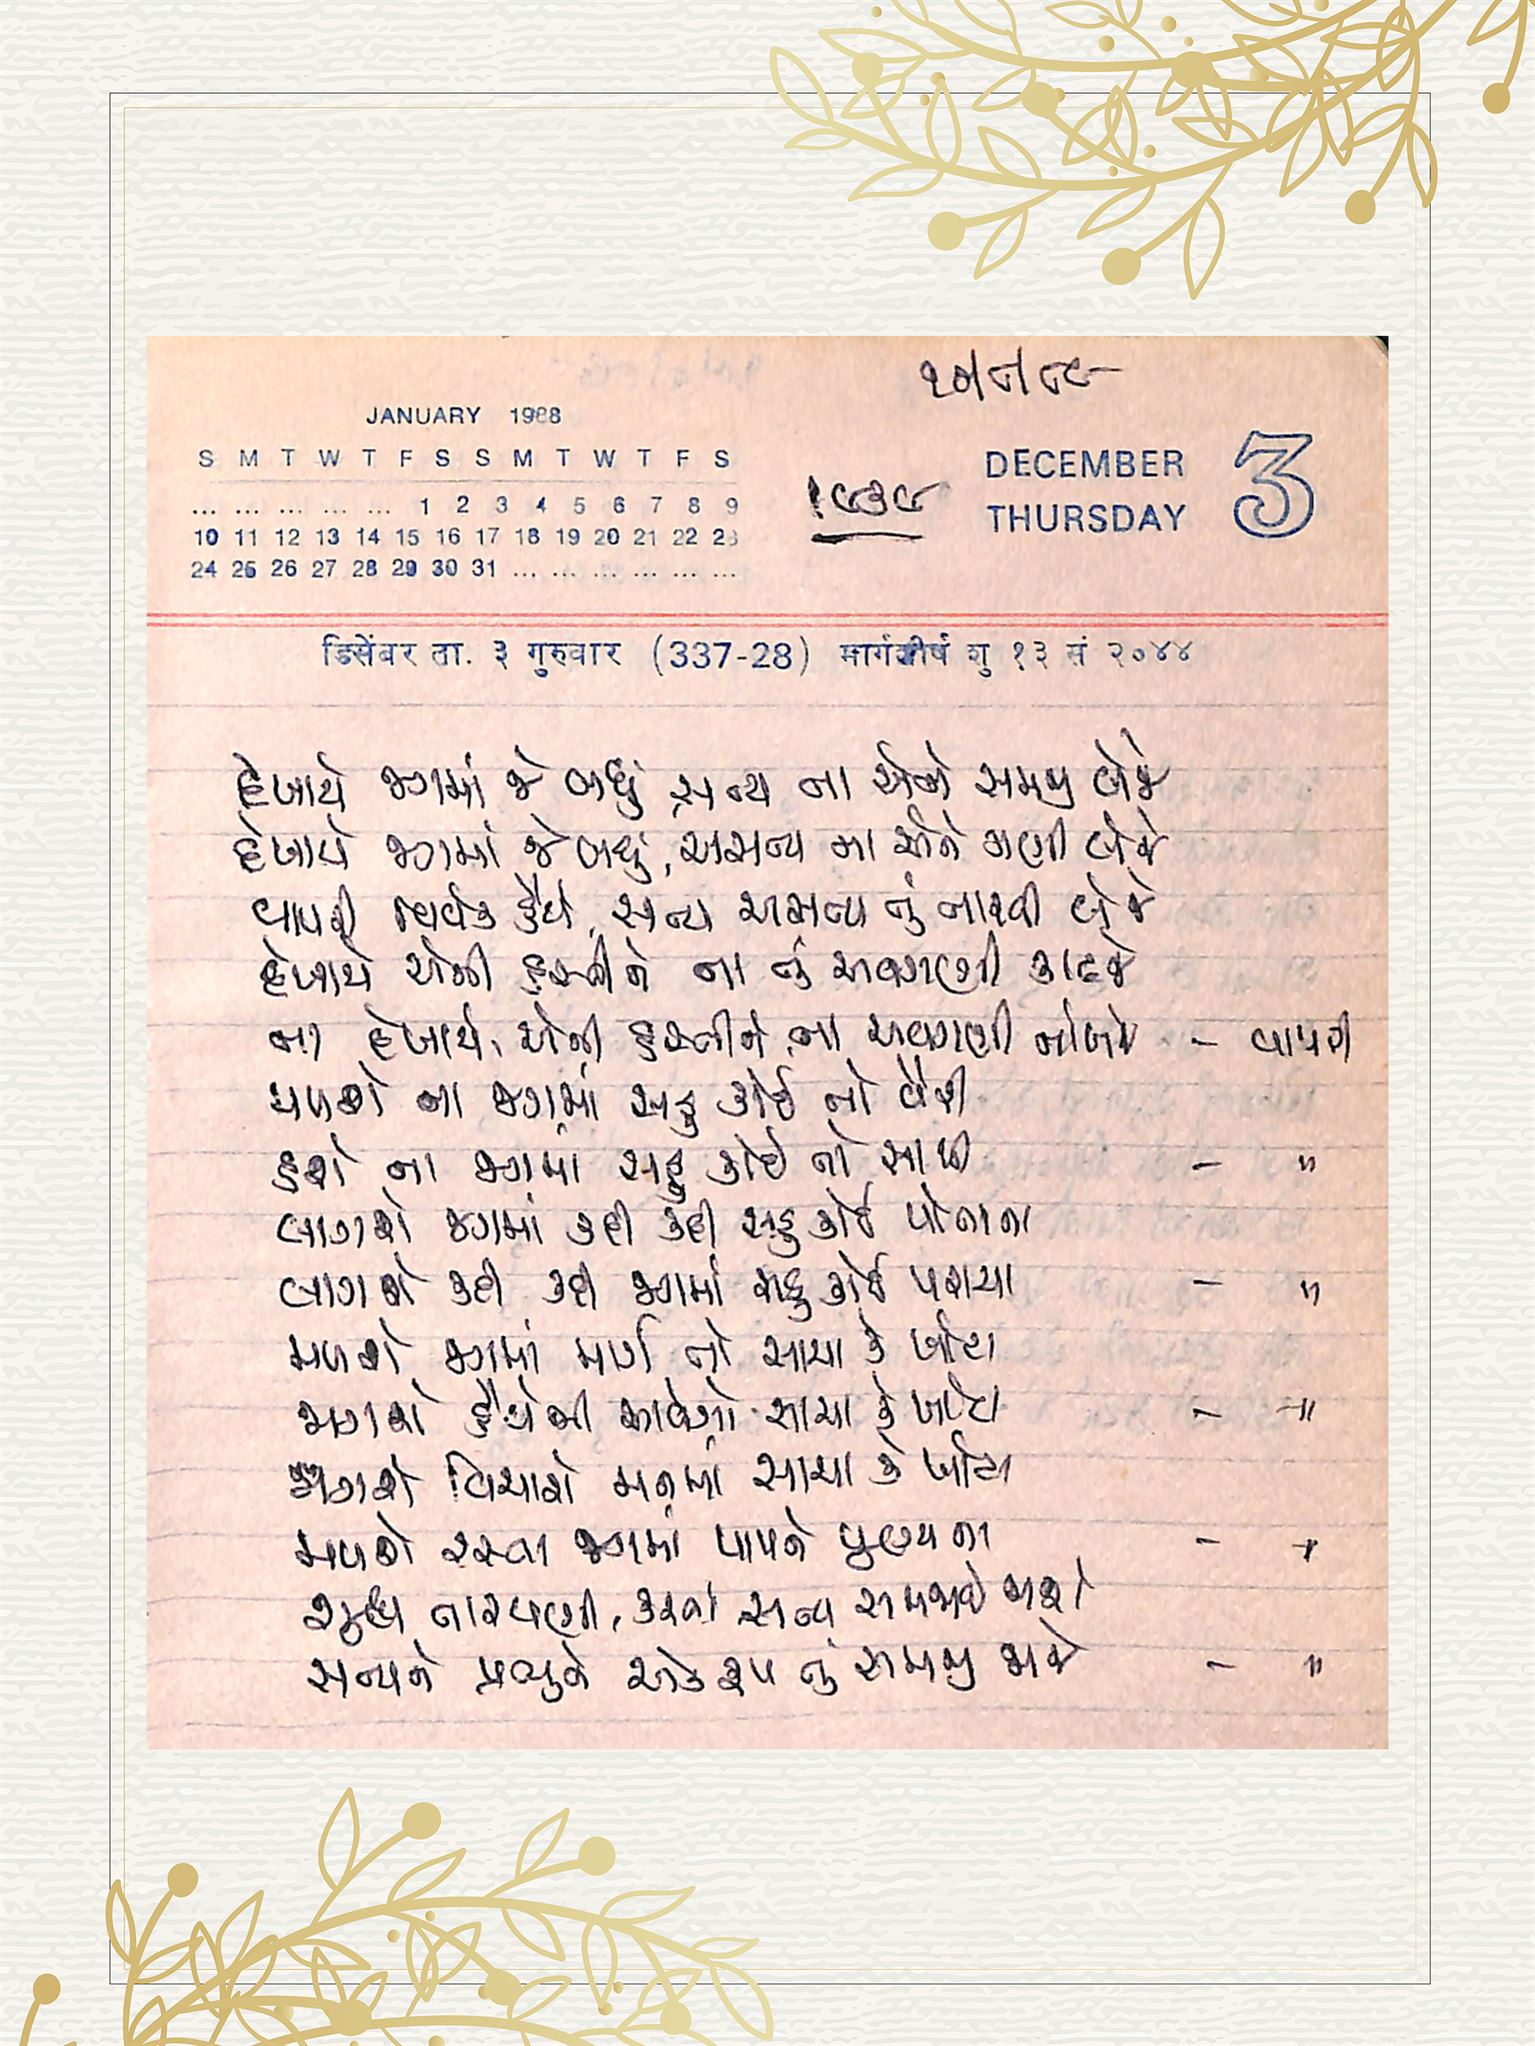 ૨૭/૮/૮૯
JANUARY 1988
S M T W T F S S M T W T F S
... ... ... ... ... 1 2 3 4 5 6 7 8 9
10 11 12 13 14 15 16 17 18 19 20 21 22 23
24 25 26 27 28 29 30 31 ... ... ... ... ... ...
૧૯૩૯
DECEMBER
THURSDAY
3
डिसेंबर ता. ३ गुरुवार (337-28) मार्गशीर्ष शु १३ सं २०४४
દેખાયે જગમાં જે બધું, સત્ય ના એને સમજી લેજે
દેખાયે જગમાં જે બધું, અસત્ય ના એને ગણી લેજે
વાપરી વિવેક હૈયે, સત્ય અસત્ય નું તારવી લેજે
દેખાયે એની હસ્તીને ના તું અવગણી કાઢજે
ના દેખાયે, એની હસ્તીને ના અવગણી નાંખજે - વાપરી
મળશે ના જગમાં સહુ કોઈ તો વૈરી
હશે ના જગમાં સહુ કોઈ તો સાથી - "
લાગશે જગમાં કદી કદી સહુ કોઈ પોતાના
લાગશે કદી કદી જગમાં સહુ કોઈ પરાયા - "
મળશે જગમાં માર્ગ તો સાચા કે ખોટા
જાગશે હૈયેથી આવેગો સાચા કે ખોટા - "
જાગશે વિચારો મનમાં સાચા કે ખોટા
મળશે રસ્તા જગમાં પાપને પુણ્ય ના - "
શુદ્ધ તારવણી, કરતા સત્ય સમજાઈ જાશે
સત્યને પ્રભુને એક રૂપ તું સમજી જાજે - "